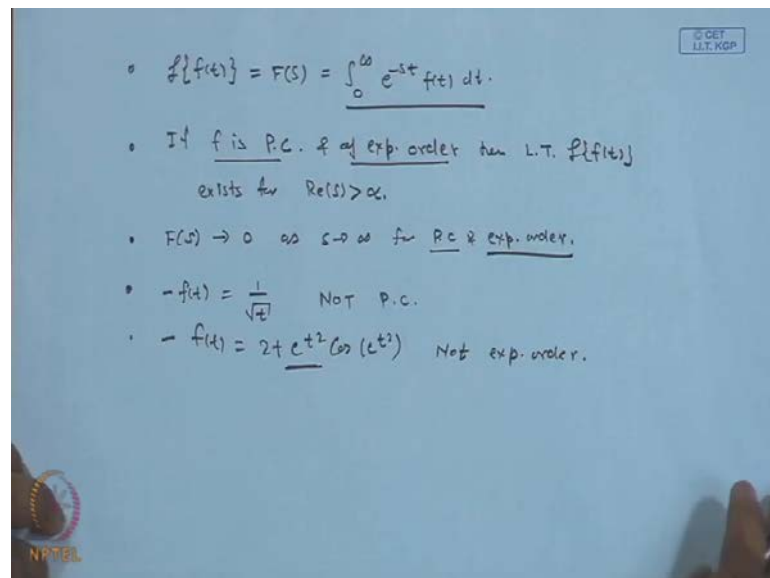 © CET
I.I.T. KGP
• ℒ{f(t)} = F(S) = ∫₀^∞ e^{-st} f(t) dt.
• If f is P.C. & of exp. order then L.T. ℒ{f(t)}
exists for Re(S) > α.
• F(S) → 0 as s → ∞ for P.C & exp. order.
• - f(t) = 1/√t NOT P.C.
• - f(t) = 2t e^{t²} Cos (e^{t²}) Not exp. order.
NPTEL